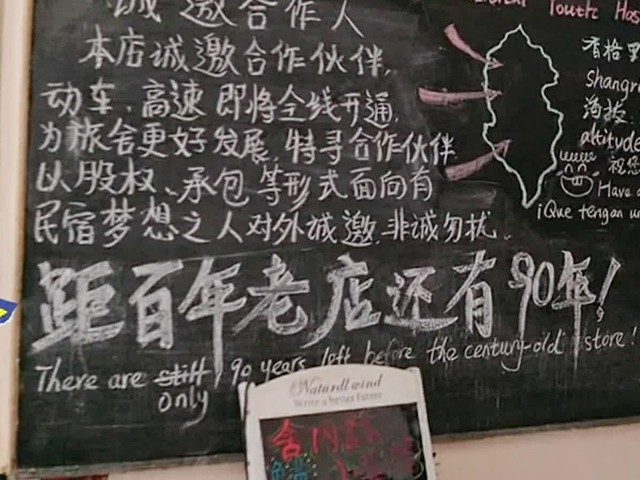 诚邀合作人
本店诚邀合作伙伴,
动车、高速即将全线开通,
为旅舍更好发展,特寻合作伙伴
以股权、承包等形式面向有
民宿梦想之人对外诚邀,非诚勿扰.
距百年老店还有90年!
There are still 90 years left before the century-old store!
only
Youth Hos
香格里
Shangr
海拔
altitude
祝您
Have
¡Que tengan
Naturall wind
Write a better future
含内